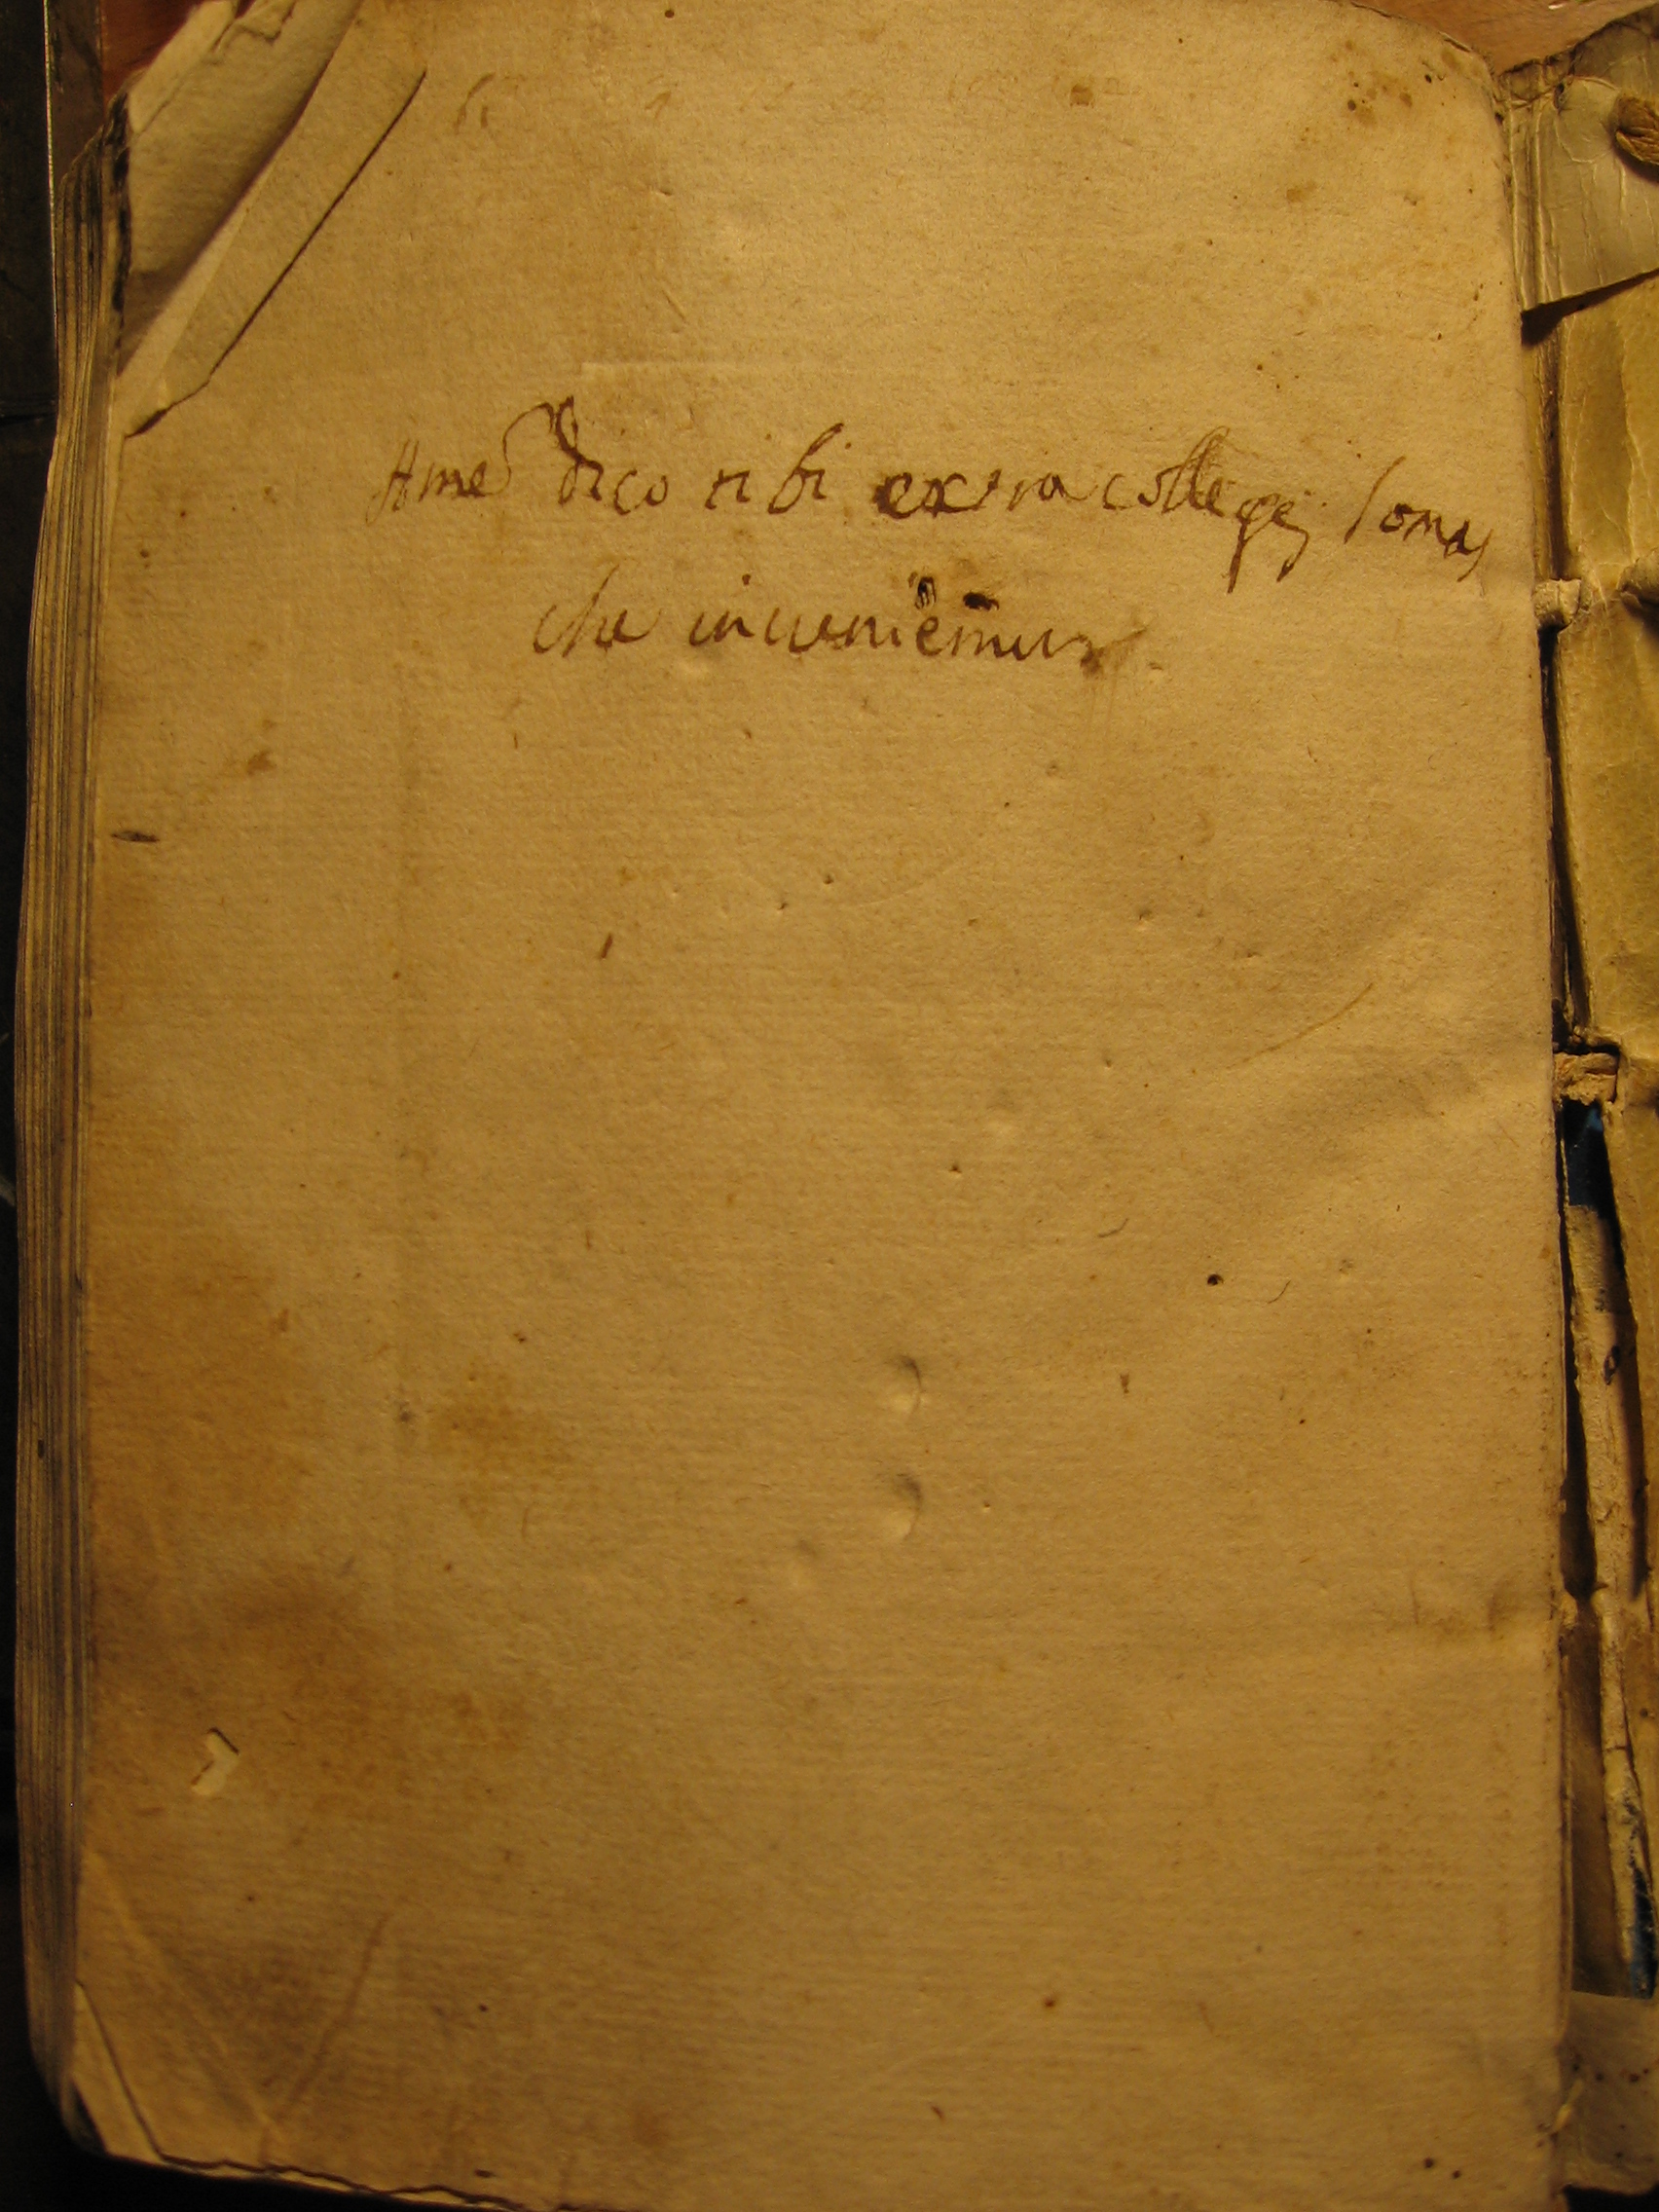 Ame dico tibi extra collegij somas
che inueniemur